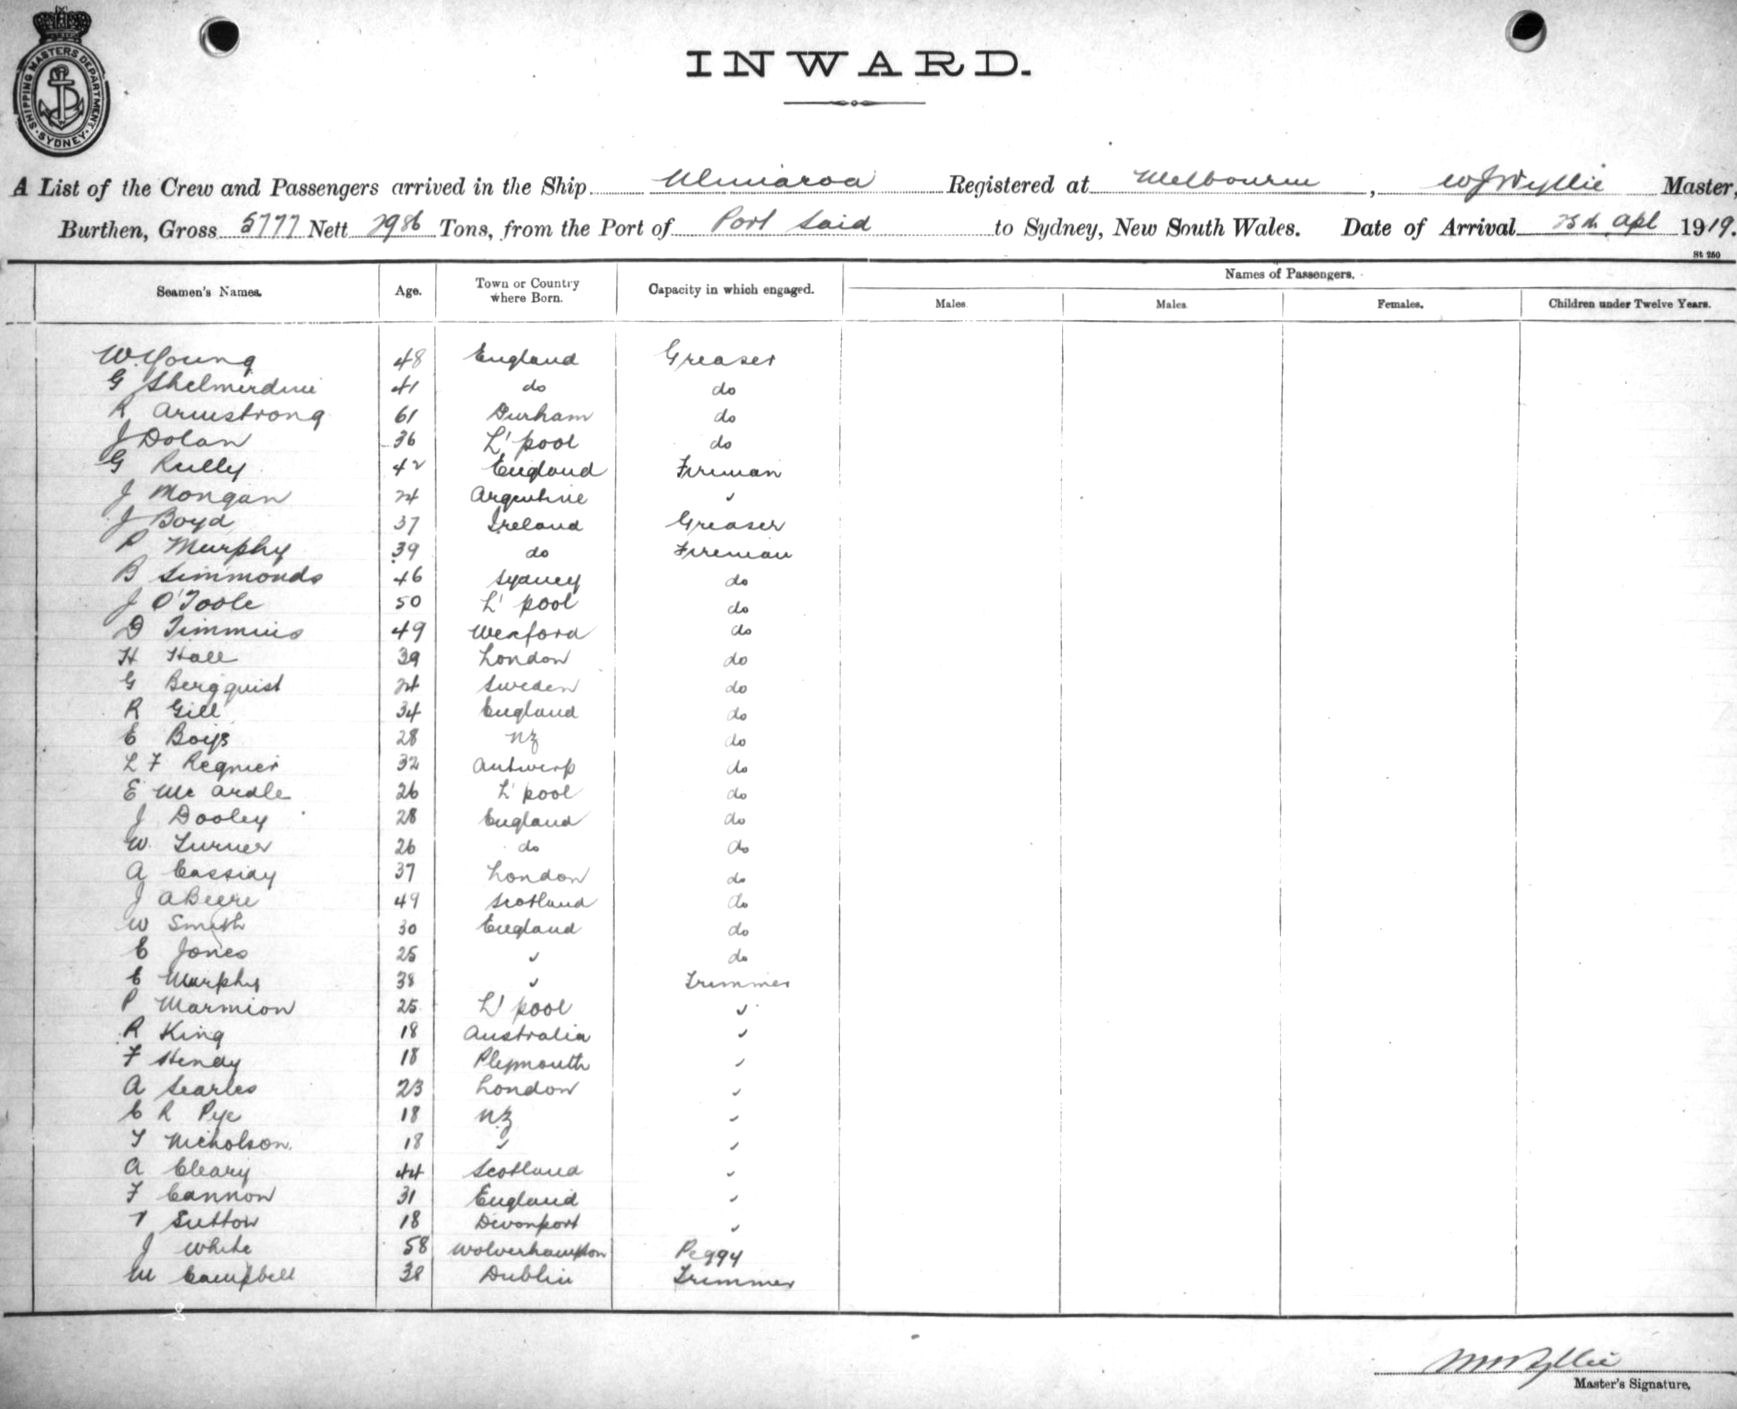 SHIPPING MASTERS DEPARTMENT
SYDNEY
INWARD.
A List of the Crew and Passengers arrived in the Ship Ulimaroa Registered at Melbourne, W J Wyllie Master,
Burthen, Gross 5777 Nett 2986 Tons, from the Port of Port Said to Sydney, New South Wales. Date of Arrival 25th Apl 1919.
St 250
Seamen's Names. Age. Town or Country where Born. Capacity in which engaged. Names of Passengers.
Males Males Females. Children under Twelve Years.
W. Young 48 England Greaser
G Shelmerdine 41 do do
R Armstrong 61 Durham do
J Dolan 36 L'pool do
G Rully 42 England Fireman
J Mongan 24 Argentine "
J Boyd 37 Ireland Greaser
P Murphy 39 do Fireman
B Simmonds 46 Sydney do
J O'Toole 50 L'pool do
D Timmins 49 Wexford do
H Hall 39 London do
G Bergquist 24 Sweden do
R Gill 34 England do
E Boys 28 NZ do
L F Regnier 32 Antwerp do
E Mc Ardle 26 L'pool do
J Dooley 28 England do
W. Turner 26 do do
A Cassidy 37 London do
J A Beere 49 Scotland do
W Smith 30 England do
C Jones 25 " do
C Murphy 38 " Trimmer
P Marmion 25 L'pool "
R King 18 Australia "
F Hendy 18 Plymouth "
A Searles 23 London "
C R Pye 18 NZ "
T Nicholson. 18 " "
A Cleary 44 Scotland "
F Cannon 31 England "
T Sutton 18 Devonport "
J White 58 Wolverhampton Peggy
M Campbell 38 Dublin Trimmer
W J Wyllie
Master's Signature.